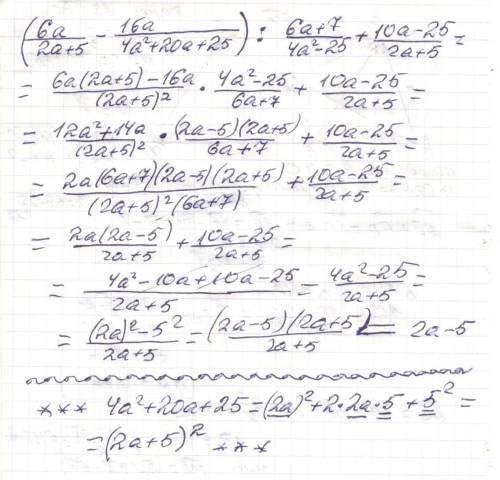 (6a/(2a+5) - 16a/(4a²+20a+25)) : (6a+7)/(4a²-25) + (10a-25)/(2a+5) =
= (6a(2a+5)-16a)/(2a+5)² · (4a²-25)/(6a+7) + (10a-25)/(2a+5) =
= (12a²+14a)/(2a+5)² · ((2a-5)(2a+5))/(6a+7) + (10a-25)/(2a+5) =
= (2a(6a+7)(2a-5)(2a+5))/((2a+5)²(6a+7)) + (10a-25)/(2a+5) =
= (2a(2a-5))/(2a+5) + (10a-25)/(2a+5) =
= (4a²-10a+10a-25)/(2a+5) = (4a²-25)/(2a+5) =
= ((2a)²-5²)/(2a+5) = ((2a-5)(2a+5))/(2a+5) = 2a-5
*** 4a²+20a+25=(2a)²+2·2a·5+5² =
=(2a+5)² ***